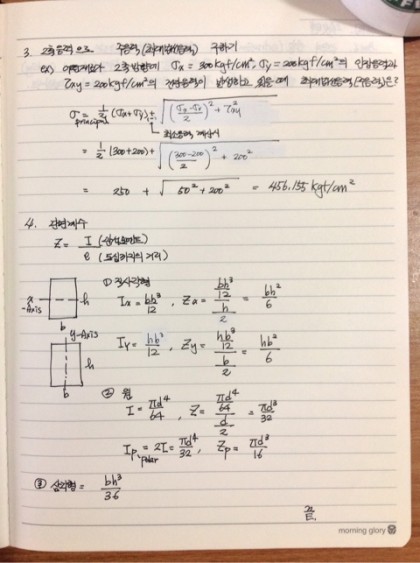 3. 2축응력으로 주응력 (최대법선응력) 구하기
ex) 2축방향에 σx = 300kgf/cm², σy = 200kgf/cm²의
τxy = 200kgf/cm²의 전단응력이 최대법선응력(주응력)은?
σ principal = 1/2 (σx+σy) ± √((σx-σy)/2)² + τ²xy
= 1/2 · (300+200) + √((300-200)/2)² + 200²
= 250 + √50² + 200² = 456.155 kgf/cm²
4. 단면계수
Z = I (단면2차모멘트) / e (도심까지의 거리)
① 직사각형
x-Axis h b
Ix = bh³/12 , Zx = (bh³/12)/(h/2) = bh²/6
y-Axis h b
Iy = hb³/12 , Zy = (hb³/12)/(b/2) = hb²/6
② 원
I = πd⁴/64 , Z = (πd⁴/64)/(d/2) = πd³/32
Ip = 2I = πd⁴/32 , Zp = πd³/16
polar
③ 삼각형 = bh³/36
끝.
morning glory